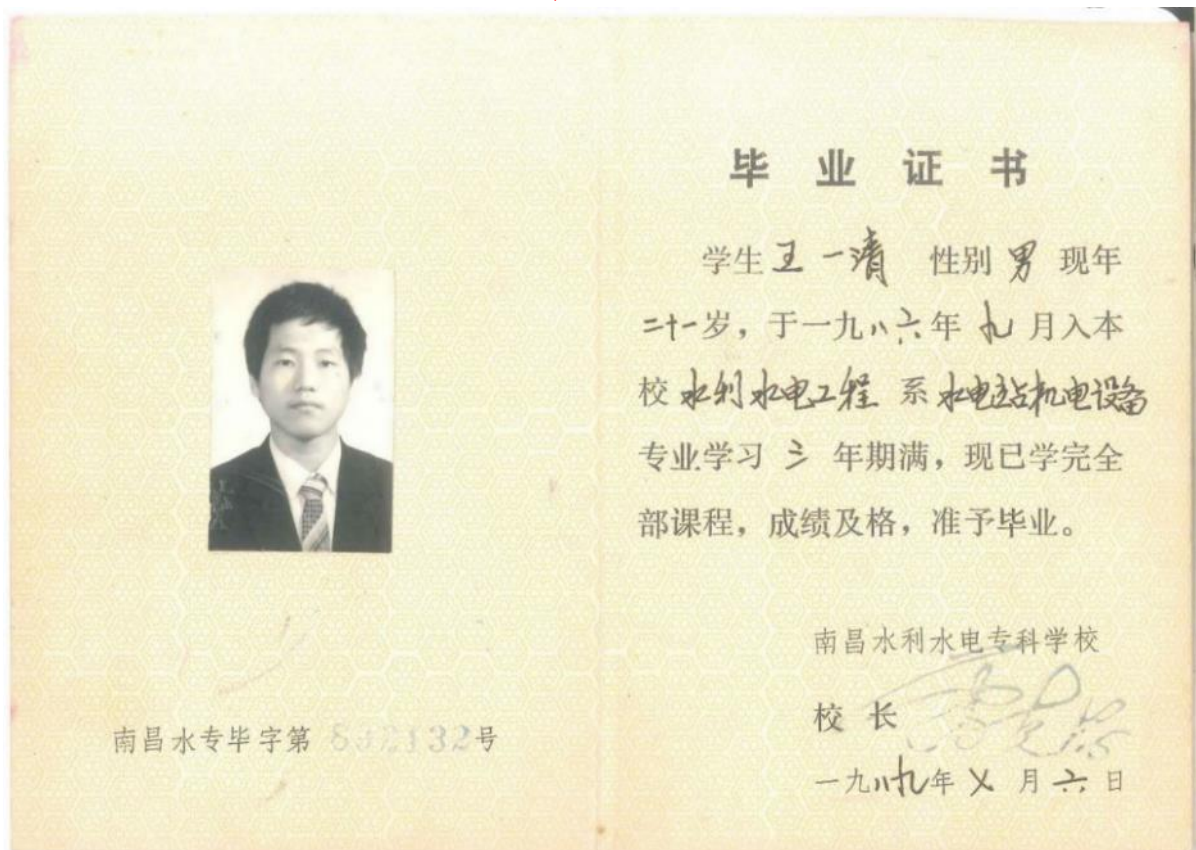 毕业证书
学生王一清 性别男 现年
二十一岁，于一九八六年九月入本
校水利水电工程系水电站机电设备
专业学习三年期满，现已学完全
部课程，成绩及格，准予毕业。
南昌水利水电专科学校
校长
一九八九年 月六日
南昌水专毕字第 号